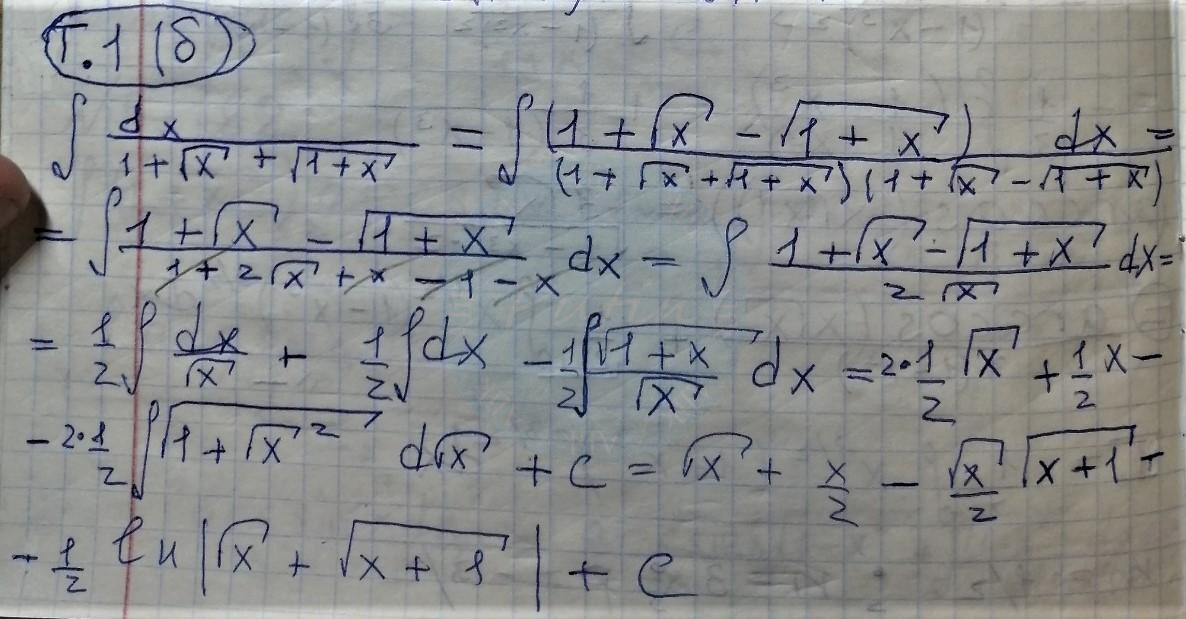 Т.1 (б)
∫ dx / (1 + √x + √(1+x)) = ∫ (1 + √x - √(1 + x)) dx / ((1 + √x + √(1 + x)) (1 + √x - √(1 + x))) =
= ∫ (1 + √x - √(1 + x)) / (1 + 2√x + x - 1 - x) dx = ∫ (1 + √x - √(1 + x)) / (2√x) dx =
= 1/2 ∫ dx/√x + 1/2 ∫ dx - 1/2 ∫ √(1 + x)/√x dx = 2·1/2 √x + 1/2 x -
- 2·1/2 ∫ √(1 + √x²) d√x + C = √x + x/2 - √x/2 √(x + 1) -
- 1/2 ln |√x + √(x + 1)| + C